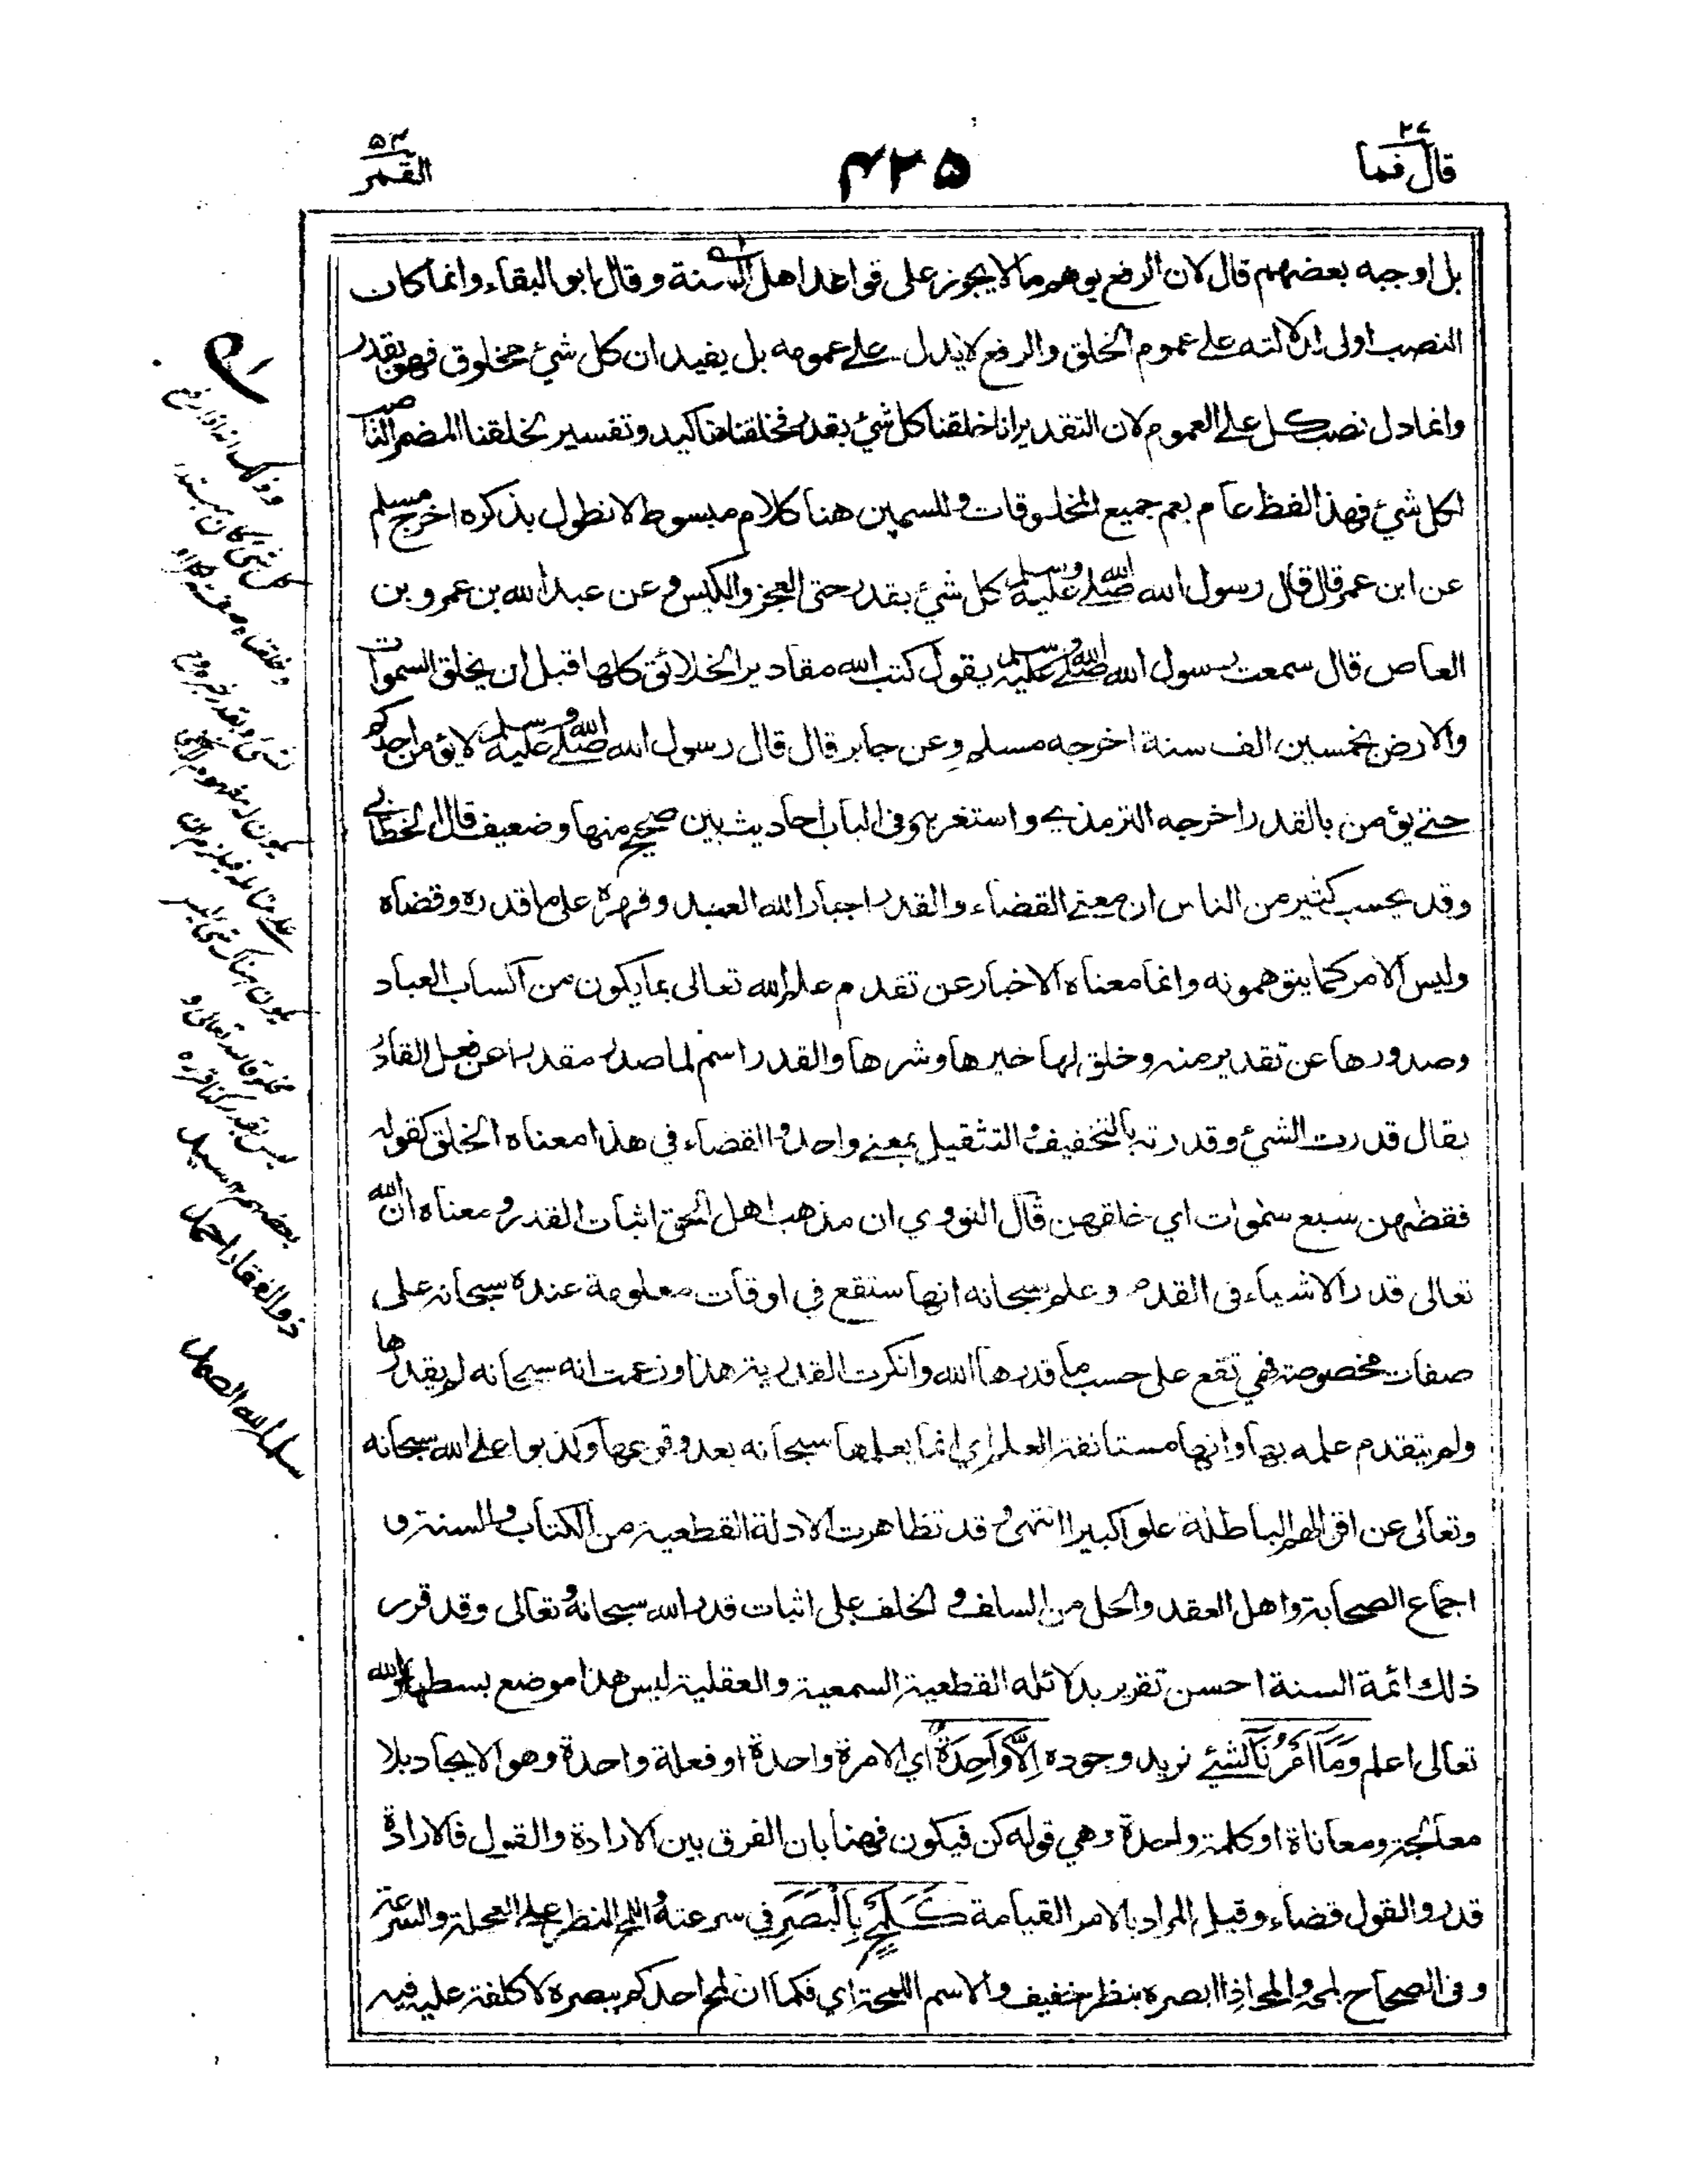 ۲۷
قال فما
۴۲۵
۵۴
القمر
بل اوجبه بعضهم قال لان الرفع يوهم ما لا يجوز على قواعد اهل السنة وقال ابو البقاء وانما كان
النصب اولى لدلالته على عموم الخلق والرفع لا يدل على عمومه بل يفيد ان كل شئ مخلوق فهو بقدر
وانما دل نصب كل على العموم لان التقدير انا خلقنا كل شئ بقدر فخلقناه تاكيد وتفسير لخلقنا المضمر الناصب
لكل شئ فهذا لفظ عام يعم جميع المخلوقات وللسمين هنا كلام مبسوط لا نطول بذكره اخرج مسلم
عن ابن عمر قال قال رسول الله صلى الله عليه وسلم كل شئ بقدر حتى العجز والكيس وعن عبد الله بن عمرو بن
العاص قال سمعت رسول الله صلى الله عليه وسلم يقول كتب الله مقادير الخلائق كلها قبل ان يخلق السموات
والارض بخمسين الف سنة اخرجه مسلم وعن جابر قال قال رسول الله صلى الله عليه وسلم لا يؤمن احدكم
حتى يؤمن بالقدر اخرجه الترمذي واستغربه وفي الباب احاديث بين صحيح منها وضعيف قال الخطابي
وقد يحسب كثير من الناس ان معنى القضاء والقدر اجبار الله العبد وقهره على ما قدره وقضاه
وليس الامر كما يتوهمونه وانما معناه الاخبار عن تقدم علم الله تعالى بما يكون من اكساب العباد
وصدورها عن تقدير منه وخلق لها خيرها وشرها والقدر اسم لما صدر مقدرا عن فعل القادر
يقال قدرت الشئ وقدرته بالتخفيف والتثقيل بمعنى واحد والقضاء في هذا معناه الخلق كقوله
فقضهن سبع سموات اي خلقهن قال النووي ان مذهب اهل الحق اثبات القدر ومعناه ان الله
تعالى قدر الاشياء في القدم وعلم سبحانه انها ستقع في اوقات معلومة عنده سبحانه على
صفات مخصوصة فهي تقع على حسب ما قدرها الله وانكرت القدرية هذا وزعمت انه سبحانه لم يقدرها
ولم يتقدم علمه بها وانها مستانفة العلم اي انما يعلمها سبحانه بعد وقوعها وكذبوا على الله سبحانه
وتعالى عن اقوالهم الباطلة علوا كبيرا انتهى وقد تظاهرت الادلة القطعية من الكتاب والسنة و
اجماع الصحابة واهل العقد والحل من السلف والخلف على اثبات قدر الله سبحانه وتعالى وقد قرر
ذلك ائمة السنة احسن تقرير بدلائله القطعية السمعية والعقلية ليس هذا موضع بسطها والله
تعالى اعلم وَمَا اَمْرُنَا لشئ نريد وجوده اِلَّا وَاحِدَةٌ اي الا مرة واحدة او فعلة واحدة وهو الايجاد بلا
معالجة ومعاناة او كلمة واحدة وهي قوله كن فيكون فهنا بان الفرق بين الارادة والقول فالارادة
قدر والقول قضاء وقيل المراد بالامر القيامة كَلَمْحٍ بِالْبَصَرِ في سرعته واللمح النظر على العجلة والسرعة
وفي الصحاح لمحه والمحه اذا ابصره بنظر خفيف والاسم اللمحة اي فكما ان لمح احدكم ببصره لا كلفة عليه فيه
بعضهم ۱۲ سيد
ذو الفقار احمد
سلمه الله الصمد